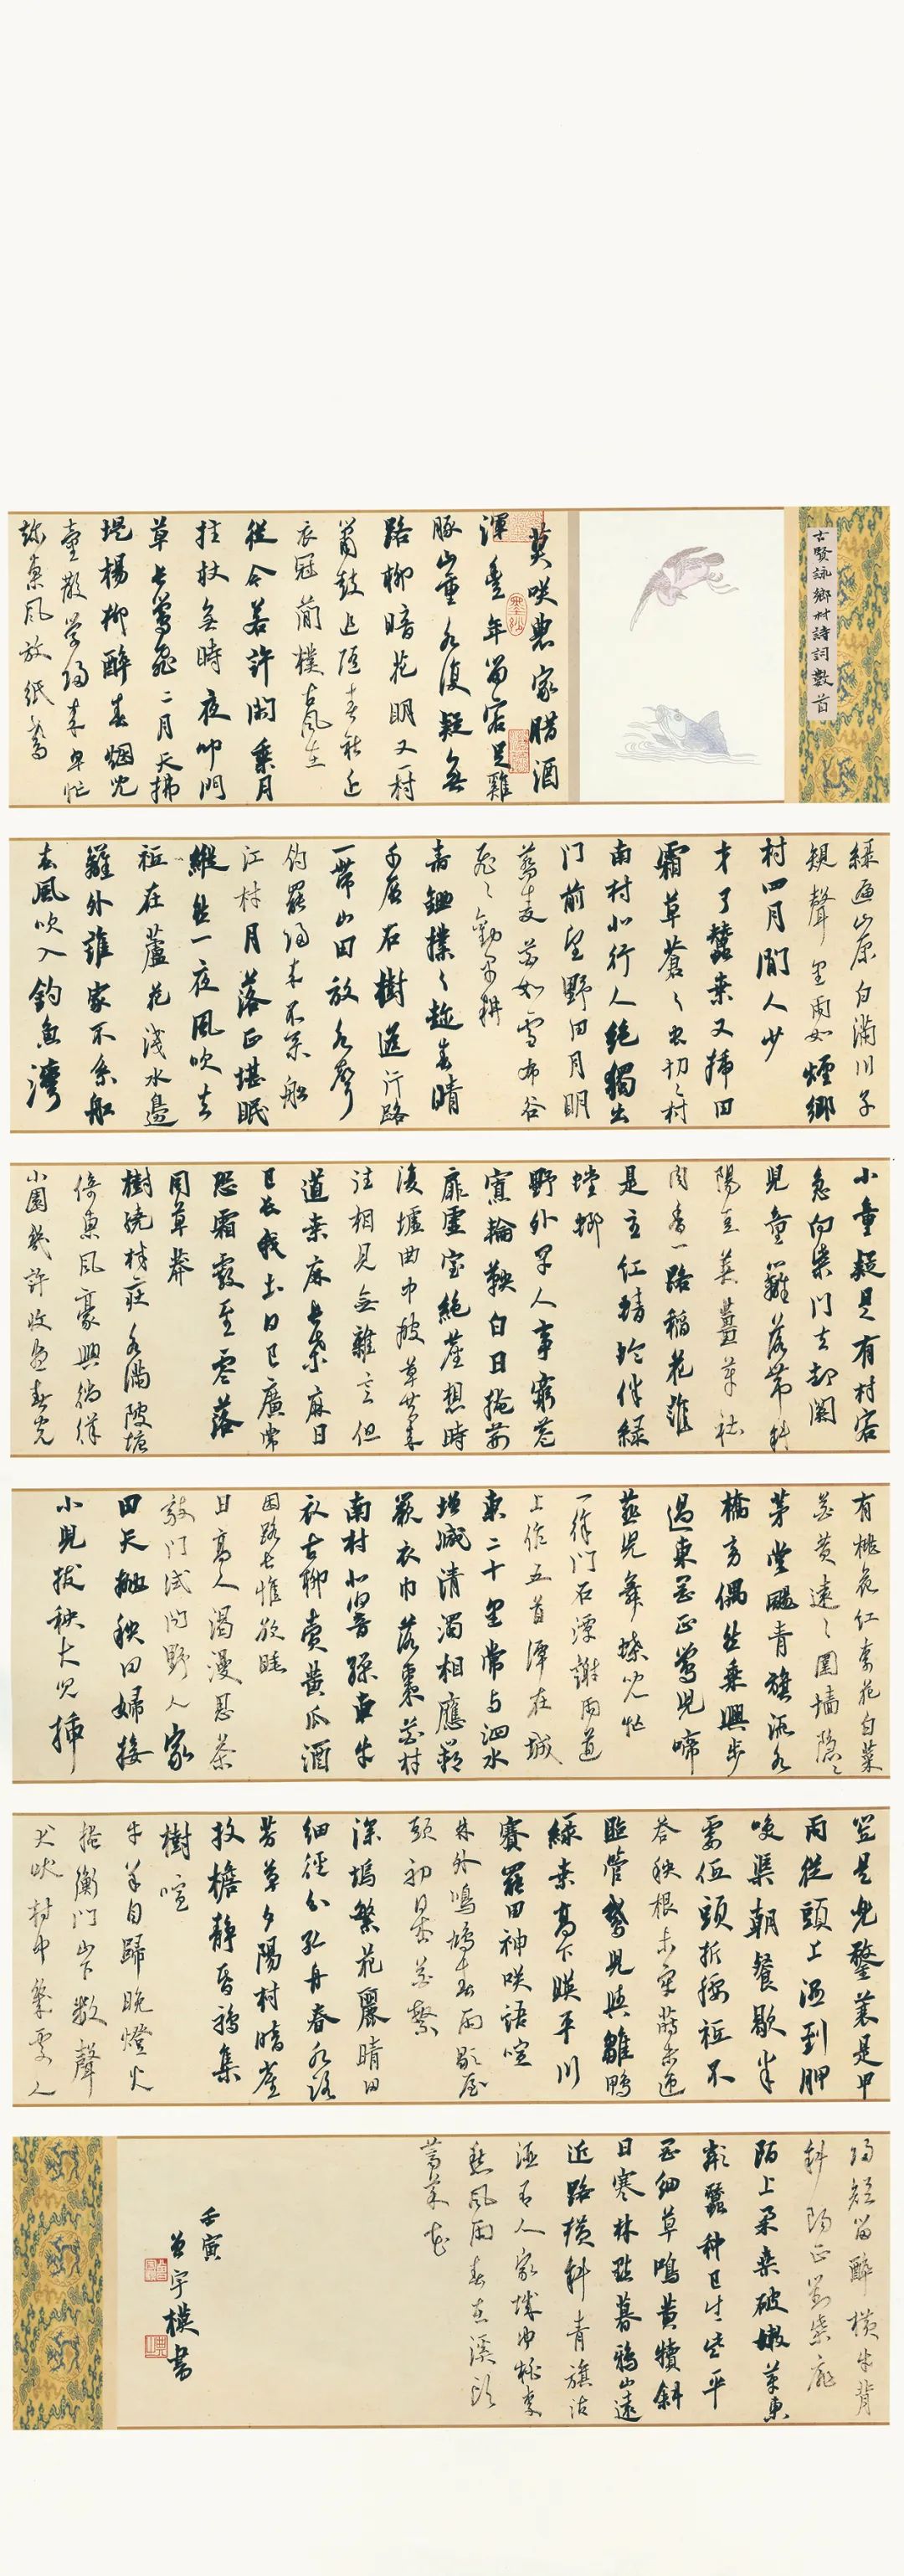 古賢詠鄉村詩詞數首
莫咲農家腊酒
渾豐年留客足雞
豚山重水復疑無
路柳暗花明又一村
簫鼓追隨春社近
衣冠簡樸古風
從今若許閑乘月
拄杖無時夜叩門
草長鶯飛二月天拂
堤楊柳醉春烟兒
童散學歸來早忙
趁東風放紙鳶
綠遍山原白滿川子
規聲里雨如煙鄉
村四月閒人少
才了蠶桑又插田
霜草蒼々虫切々村
南村北行人絕獨出
門前望野田月明
蕎麥花如雪布谷
飛々勸早耕
舂鋤撲々趁春晴
千層石樹通行路
一帶山田放水聲
釣罷歸來不系船
江村月落正堪眠
縱然一夜風吹去
衹在蘆花淺水邊
籬外誰家不系船
春風吹入釣魚灣
小童疑是有村客
急向柴門去卻關
兒童籬落帶斜
陽豆莢薑芽社
肉香一路稻花誰
是主紅蜻蛉伴綠
螳螂
野外罕人事窮巷
寡輪鞅白日掩荊
扉虛室絕塵想時
復墟曲中披草共來
往相見無雜言但
道桑麻長桑麻日
已長我土日已廣常
恐霜霰至零落
同草莽
樹繞村莊水滿陂塘
倚東風豪興徜徉
小園幾許收盡春光
有桃花紅李花白菜
花黃遠々圍墻隱々
茅堂颺青旗流水
橋旁偶然乘興步
過東岡正鶯兒啼
燕兒舞蝶兒忙
徐門石潭謝雨道
上作五首潭在城
東二十里常与泗水
增減清濁相應簌
簌衣巾落棗花村
南村北響繰車牛
衣古柳賣黃瓜酒
困路長惟欲睡
日高人渴漫思茶
敲門試問野人家
田夫拋秧田婦接
小兒拔秧大兒插
笠是兜鍪蓑是甲
雨從頭上濕到胛
喚渠朝餐歇半
霎低頭折腰衹不
答秧根未牢蒔未匝
照管鵝兒與雛鴨
綠桑高下映平川
賽罷田神咲語喧
林外鳴鳩春雨歇屋
頭初日杏花繁
深塢繁花麗晴田
細徑分孔舟春水路
芳草夕陽村暗雀
投檐靜昏鴉集
樹喧
牛羊自歸晚燈火
掩衡門山下數聲
犬吠村中幾處人
歸短笛醉橫牛背
斜陽正對柴扉
陌上柔桑破嫩芽東
鄰蠶種已生些平
岡細草鳴黃犢斜
日寒林點暮鴉山遠
近路橫斜青旗沽
酒有人家城中桃李
愁風雨春在溪頭
薺菜花
壬寅
曾宇模書